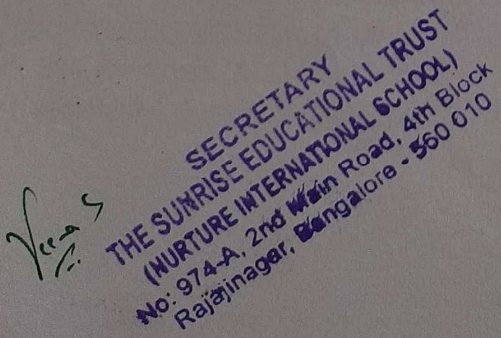 Veena S
SECRETARY
THE SUNRISE EDUCATIONAL TRUST
(NURTURE INTERNATIONAL SCHOOL)
No: 974-A, 2nd Main Road, 4th Block
Rajajinagar, Bangalore - 560 010